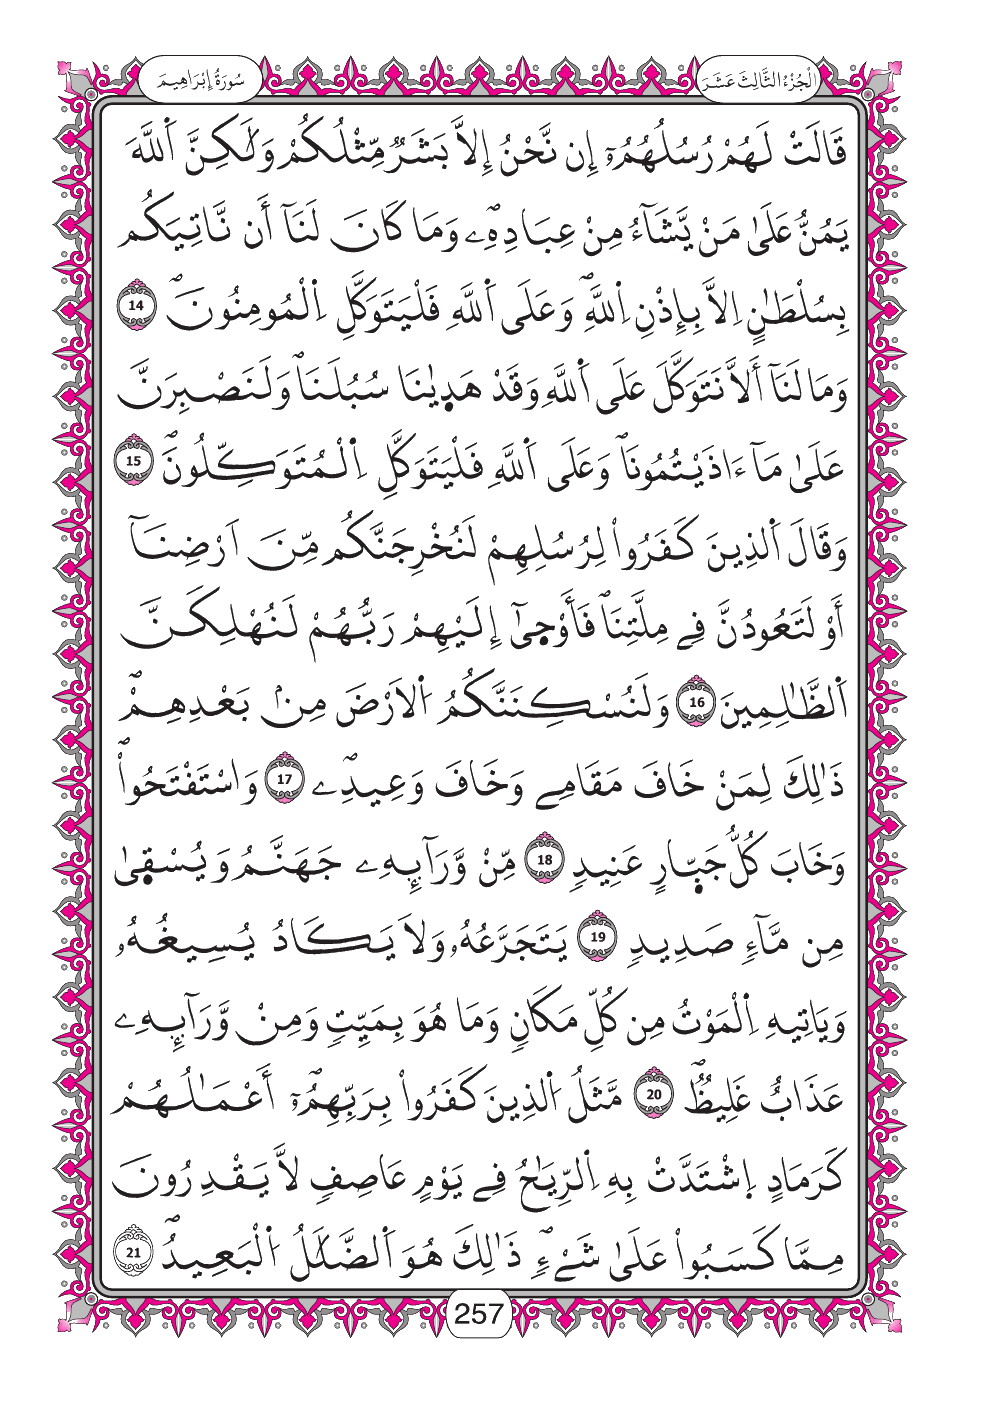 الْجُزْءُ الثَّالِثَ عَشَرَ
سُورَةُ إِبْرَاهِيمَ
قَالَتْ لَهُمْ رُسُلُهُمُۥٓ إِن نَّحْنُ إِلَّا بَشَرٌ مِّثْلُكُمْ وَلَٰكِنَّ اَ۬للَّهَ
يَمُنُّ عَلَىٰ مَنْ يَّشَآءُ مِنْ عِبَادِهِۦۖ وَمَا كَانَ لَنَآ أَن نَّاتِيَكُم
بِسُلْطَٰنٍ اِلَّا بِإِذْنِ اِ۬للَّهِۖ وَعَلَى اَ۬للَّهِ فَلْيَتَوَكَّلِ اِ۬لْمُومِنُونَۖ 14
وَمَا لَنَآ أَلَّا نَتَوَكَّلَ عَلَى اَ۬للَّهِ وَقَدْ هَد۪يٰنَا سُبُلَنَاۖ وَلَنَصْبِرَنَّ
عَلَىٰ مَآ ءَاذَيْتُمُونَاۖ وَعَلَى اَ۬للَّهِ فَلْيَتَوَكَّلِ اِ۬لْمُتَوَكِّلُونَۖ 15
وَقَالَ اَ۬لذِينَ كَفَرُواْ لِرُسُلِهِمْ لَنُخْرِجَنَّكُم مِّنَ اَرْضِنَآ
أَوْ لَتَعُودُنَّ فِے مِلَّتِنَاۖ فَأَوْح۪يٰٓ إِلَيْهِمْ رَبُّهُمْ لَنُهْلِكَنَّ
اَ۬لظَّٰلِمِينَ 16 وَلَنُسْكِنَنَّكُمُ اُ۬لَارْضَ مِنۢ بَعْدِهِمْۖ
ذَٰلِكَ لِمَنْ خَافَ مَقَامِے وَخَافَ وَعِيدِۦۖ 17 وَاسْتَفْتَحُواْۖ
وَخَابَ كُلُّ جَبّ۪ارٍ عَنِيدٖ 18 مِّنْ وَّرَآئِهِۦ جَهَنَّمُ وَيُسْق۪يٰ
مِن مَّآءٖ صَدِيدٖ 19 يَتَجَرَّعُهُۥ وَلَا يَكَادُ يُسِيغُهُۥ
وَيَاتِيهِ اِ۬لْمَوْتُ مِن كُلِّ مَكَانٖ وَمَا هُوَ بِمَيِّتٖ وَمِنْ وَّرَآئِهِۦ
عَذَابٌ غَلِيظٞۖ 20 مَّثَلُ اُ۬لذِينَ كَفَرُواْ بِرَبِّهِمُۥٓۖ أَعْمَٰلُهُمْ
كَرَمَادٍ اِ۪شْتَدَّتْ بِهِ اِ۬لرِّيَٰحُ فِے يَوْمٍ عَاصِفٖ لَّا يَقْدِرُونَ
مِمَّا كَسَبُواْ عَلَىٰ شَےْءٖۖ ذَٰلِكَ هُوَ اَ۬لضَّلَٰلُ اُ۬لْبَعِيدُۖ 21
257